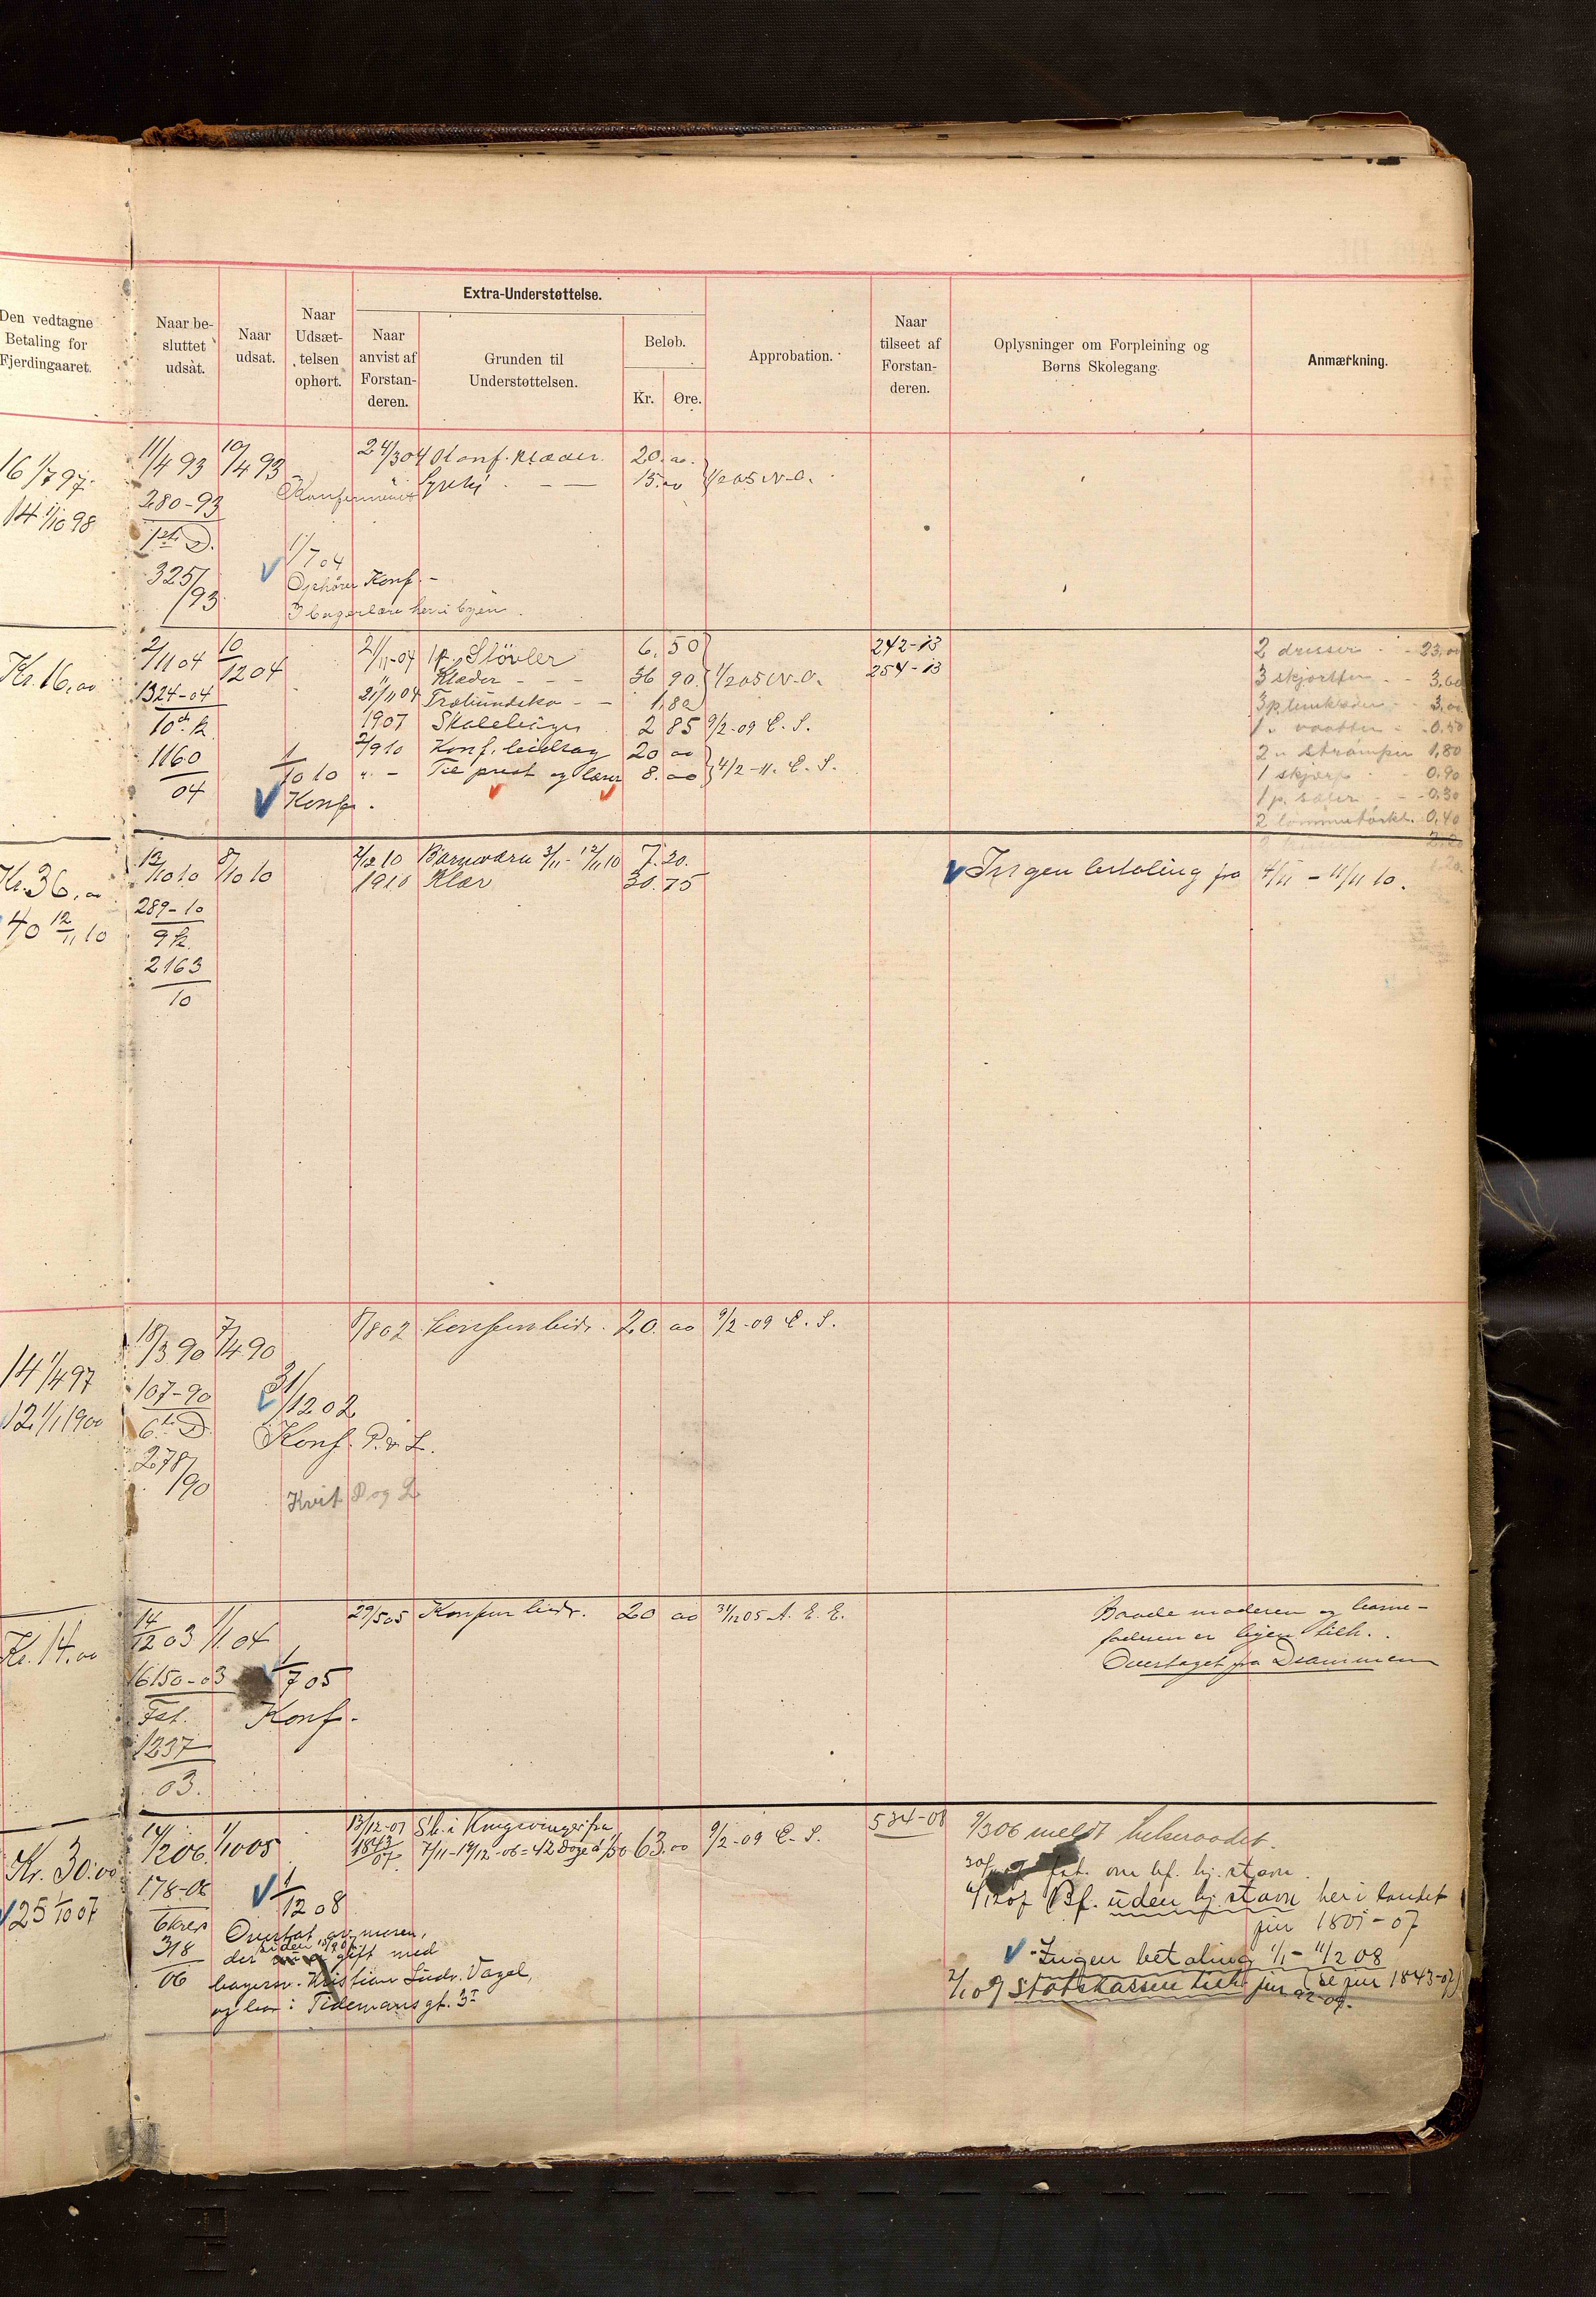 Den vedtagne
Betaling for
Fjerdingaaret.
Naar be-
sluttet
udsat.
Naar
udsat.
Naar
Udsæt-
telsen
ophørt.
Extra-Understøttelse.
Naar
anvist af
Forstan-
deren.
Grunden til
Understøttelsen.
Beløb.
Kr.
Øre.
Approbation.
Naar
tilseet af
Forstan-
deren.
Oplysninger om Forpleining og
Børns Skolegang.
Anmærkning.
16 1/7 97.
14 1/10 98
11/4 93
10/4 93
280-93
1ste D.
325/93
1/7 04
Ophører Konf.-
I bagerlære her i byen.
24/3 04 Konf. klæder. 20.00.
15.00 1/2 05 N.O.
Kr. 16,00
2/11 04
10/12 04
1324-04
10de k.
1160
04
1/10 10
Konf.
21/11-04 1 p. Støvler 6,50
" Klæder - - - 36 90. 1/2 05 N.O.
21/11 04 Træbundsko - - 1,80
1907 Skolebøger 2 85 9/2-09 E. S.
2/9 10 Konf. bidrag 20 00
" - Til prest og lærer 8.00 4/2-11. E. S.
242-13
254-13
2 dresser - - 23,00
3 skjorter - - 3,60
3 p. - 3,00
1 " vaatter - - 0.50
2 " strømper 1,80
1 skjærf - - 0.90
1 p. - - 0.30
2 lommetørkl. 0.40
Kr. 36,00
40 12/11 10
12/10 10
8/10 10
289-10
9 k.
2163
10
2/12 10 Barnværn 3/11-12/11 10 7.20.
1910 Klær 30.75
Ingen betaling fra 4/11 - 11/11 10.
14 1/4 97
12 1/1 1900
18/3 90
7/4 90
107-90
6te D.
278/90
31/12 02
Konf. P. & L.
Kvit P og L
8/8 02 Konfirm bidr. 20.00 9/2-09 E. S.
Kr. 14.00
14/12 03
1/1 04
16150-03
Fat.
1237
03.
1/7 05
Konf.
29/5 05 Konfirm bidr. 20 00 31/12 05 A. E. E.
Baade moderen og barne-
faderen er byen tilh.
Overtaget fra Drammen
Kr. 30.00
25 1/10 07
14/2 06.
1/10 05
178-06
6 kres
318
06
1/12 08
Overtat av moren,
der siden 1907 gift med
bageresv. Kristian Vagel,
og bor i Tidemansgt. 3 I
13/12-07 Sk. i Kongsvinger fra
1843/07. 7/11-19/12-06 = 42 Dage á 1,50 63.00 9/2-09 E. S.
534-08
9/3 06 meldt helseraadet.
om bf. hj. stavn.
Bf. uden hj. stavn her i landet
jnr 1801-07
Ingen betaling 1/1-11/2 08
2/1 09 Statskassen tilh. jnr (se jnr 1843-07)
92-09.